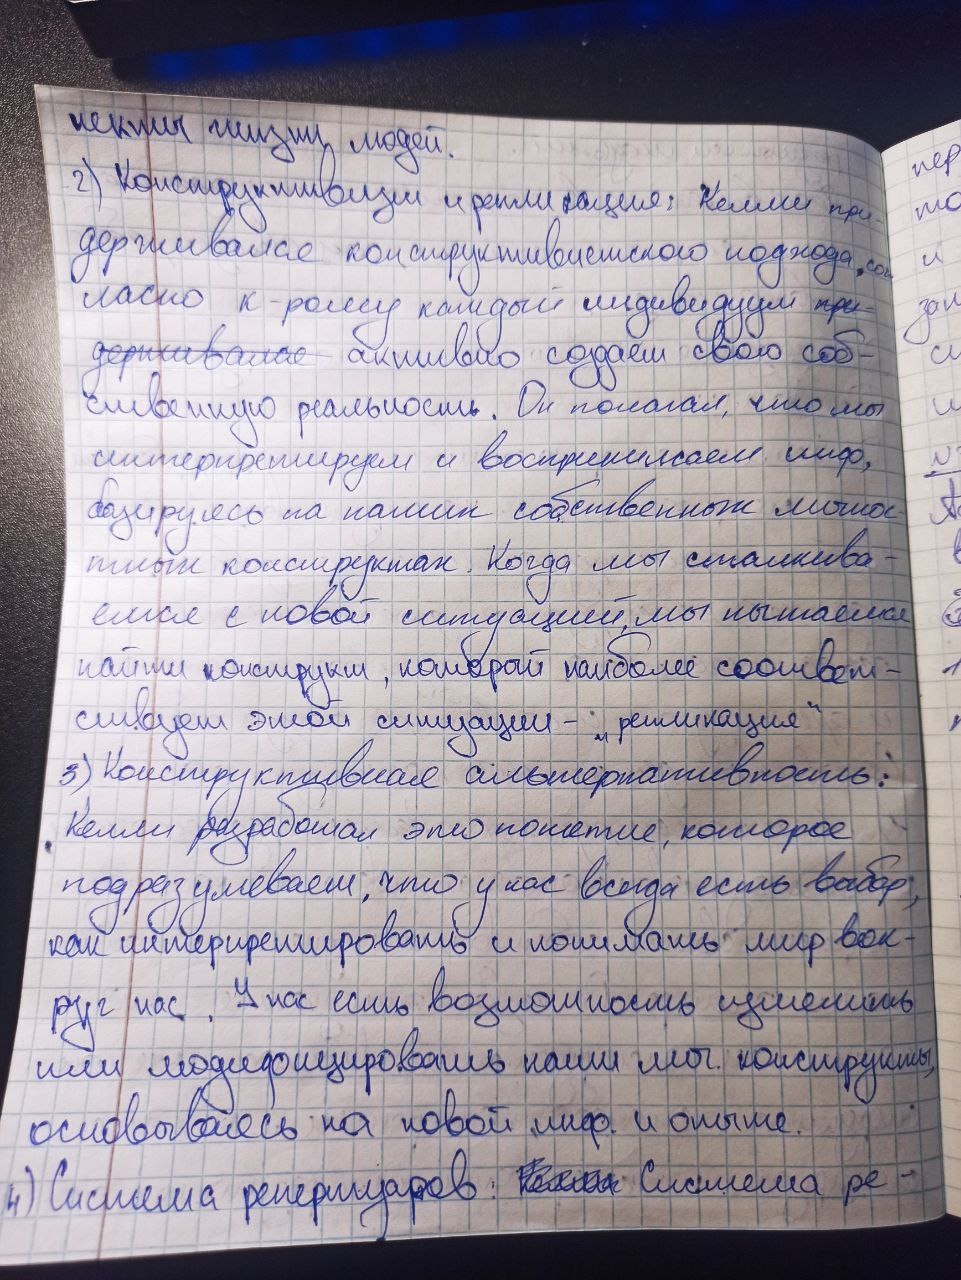 пекты жизни людей.
2) Конструктивизм и репликация: Келли при-
держивался конструктивистского подхода, сог
ласно к-рому каждый индивидуум при-
держивался активно создает свою соб-
ственную реальность. Он полагал, что мы
интерпретируем и воспринимаем инф,
базируясь на наших собственных личнос-
тных конструктах. Когда мы сталкива-
емся с новой ситуацией, мы пытаемся
найти конструкт, который наиболее соответ-
ствует этой ситуации - „репликация“
3) Конструктивная альтернативность:
Келли разработал это понятие, которое
подразумевает, что у нас всегда есть выбор,
как интерпретировать и понимать мир вок-
руг нас. У нас есть возможность изменить
или модифицировать наши конструкты,
основываясь на новой инф. и опыте.
4) Система репертуаров: Система ре-
пер
то
и
зап